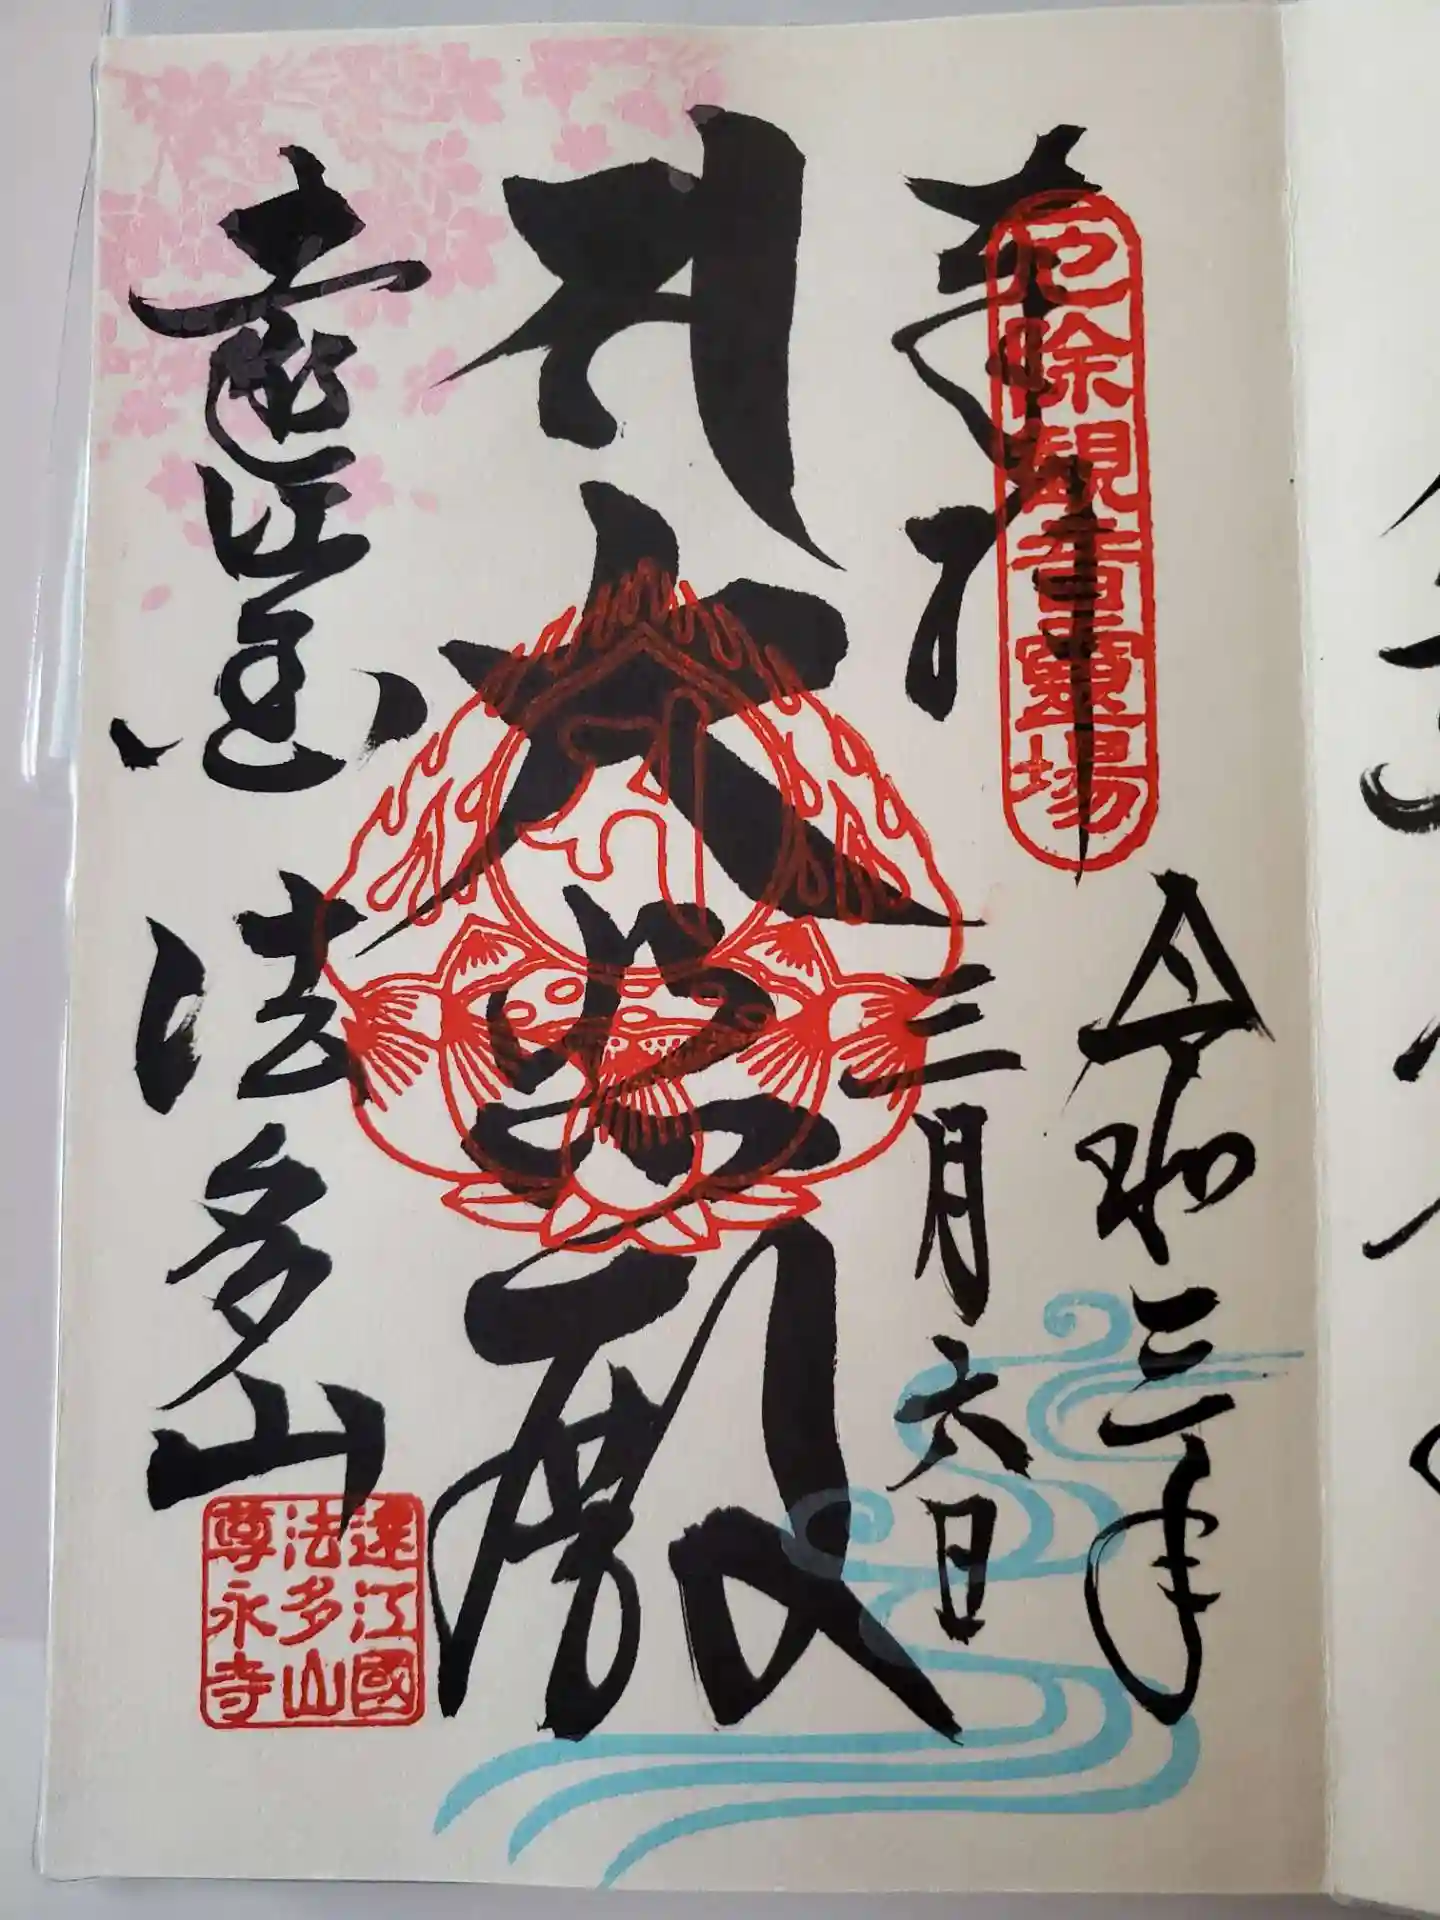 奉拝
厄除観音霊場
令和三年
三月六日
大悲殿
遠江国
法多山
遠江國
法多山
尊永寺